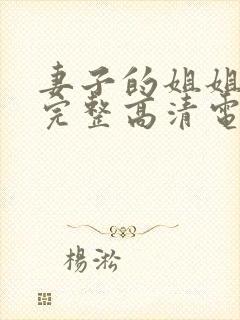 妻子的姐姐
完整高清電
楊淞